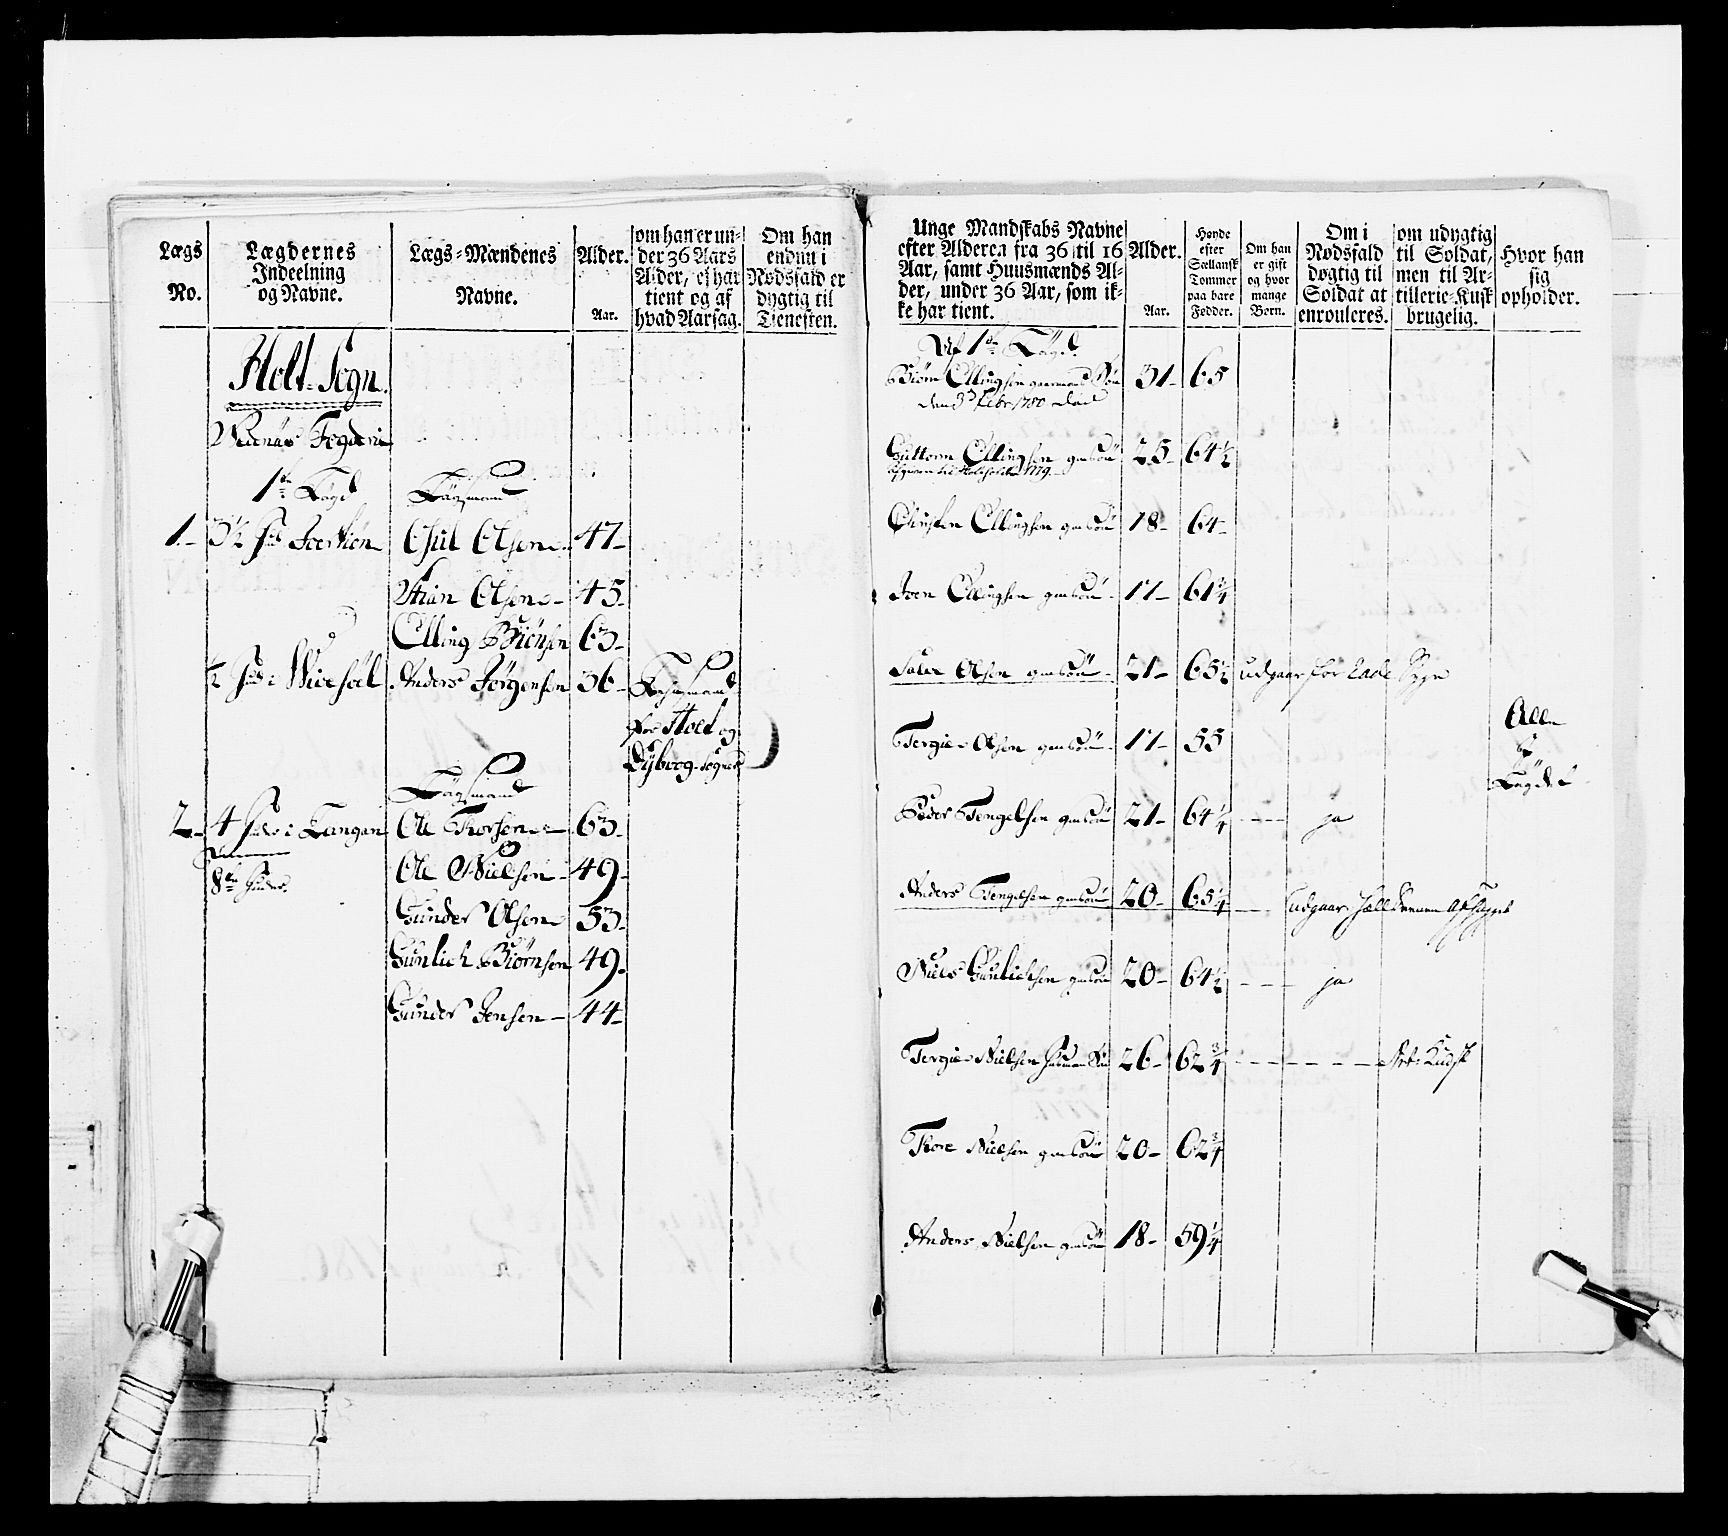 Lægs
No.
Lægdernes
Indeelning
og Navne.
Lægs-Mændenes
Navne.
Alder.
Aar.
om han er un-
der 36 Aars
Alder, ej har
tient og af
hvad Aarsag.
Om han
endnu i
Nødsfald er
dygtig til
Tienesten.
Holt-Sogn.
Fogderie
1te Lægd
Lægsmand
1. 3½ Olsen 47
Olsen 45
Elling Biönsen 63
½ Anders Jörgensen 36
for Holt og
Dybvog-Sogner
Lægsmand
2 4 i Langan Ole Thorsen 63
8te Ole Nielsen 49
Gunder Olsen 53
Gunlich Biørnsen 49
Gunder Jensen 44
Unge Mandskabs Navne
efter Alderen fra 36 til 16
Aar, samt Huusmænds Al-
der, under 36 Aar, som ik-
ke har tient.
Alder.
Aar.
Høyde
efter
Sællansk
Tommer
paa bare
Fødder.
Om han
er gift
og hvor
mange
Børn.
Om i
Nødsfald
dygtig til
Soldat at
enrouleres.
om udygtig
til Soldat,
men til Ar-
tillerie-Kusk
brugelig.
Hvor han
sig
opholder.
Af 1te Lægd.
Biørn Ellingsen Søn 31 65
den 3d Febr 1780 död
Guttorm Ellingsen gmsön 25 64½
1779
Christen Ellingsen gmsön 18 64
Joen Ellingsen gmsön 17 61¾
Salve Olsen gmsön 21 65½ udgaar for
Tergie Olsen gmsön 17 55
Alle
i
Lægdet
Peder Tengelsen gmsön 21 64¼ ja
Anders Tengelsen gmsön 20 65¼ udgaar
Niels Gunlichsen gmsön 20 64½ ja
Tergie Nielsen 26 62¾ Art: Kudsk
Thore Nielsen gmsön 20 62¾
Anders Nielsen gmsön 18 59¼